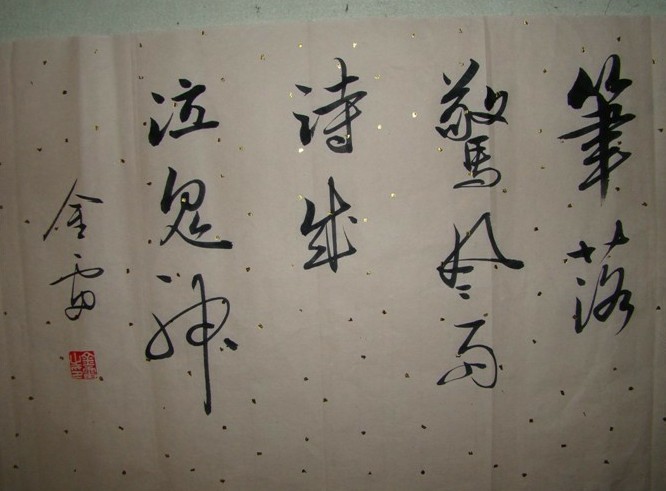 筆落
驚風雨
詩成
泣鬼神
金雷